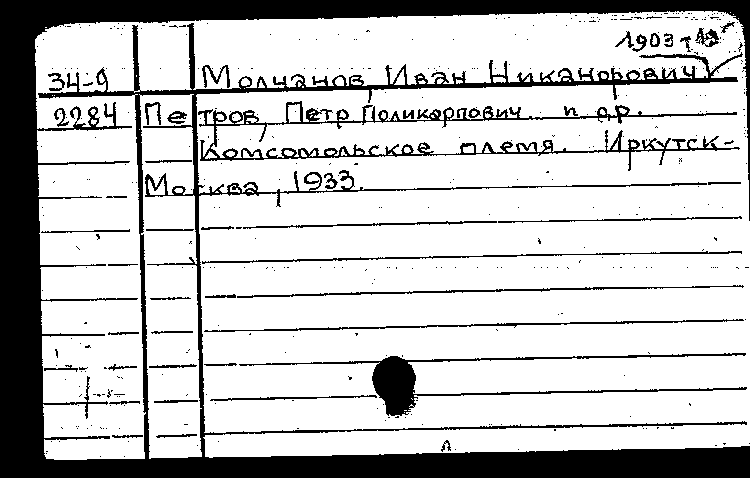 1903-
34-9 Молчанов, Иван Никанорович
2284 Петров, Петр Поликарпович и др.
Комсомольское племя. Иркутск-
Москва, 1933.